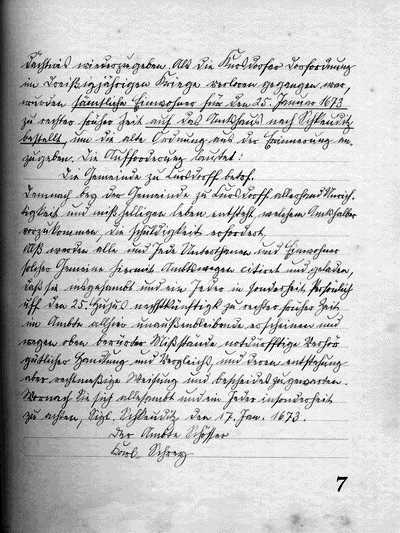 wiederzugeben. Als die Kursdorfer Dorfordnung
im Dreißigjährigen Kriege verloren gegangen war,
wurden sämtliche Einwohner für den 25. Januar 1673
zu rechter früher Zeit auf das Amthaus nach Schkeuditz
bestellt, um die alte Ordnung aus der Erinnerung an-
zugeben. Die Aufforderung lautet:
Die Gemeinde zu Cursdorff betrf.
Demnach bey der Gemeinde zu Cursdorff allerhand Unrich-
tigkeit und mißhelligen Leben entsteht welchem Ambtshalber
vorzukommen die Schuldigkeit erfordert.
Alß werden alle und Jede Unterthanen und Einwohner
solcher Gemeine hiermit Amtswegen citiret und geladen,
daß sie insgesambt und ein Jeder in Sonderheit Persönlich
uff den 25. hujus nechstkünftigk zu rechter früher Zeit
im Ambte allhier unaußenbleibende erscheinen und
wegen oben berürter Mißstände notdürfftige Verhör
gütlicher Handlung und Vergleichs, und deren entstehung
aber rechtmeßige Weisung und bescheidet zu gewarten.
Wornach sie sich allesambt und ein Jeder insonderheit
zu achten, Sigl. Schkeuditz den 17. Jan. 1673.
Der Ambts Schösser
Carl
7